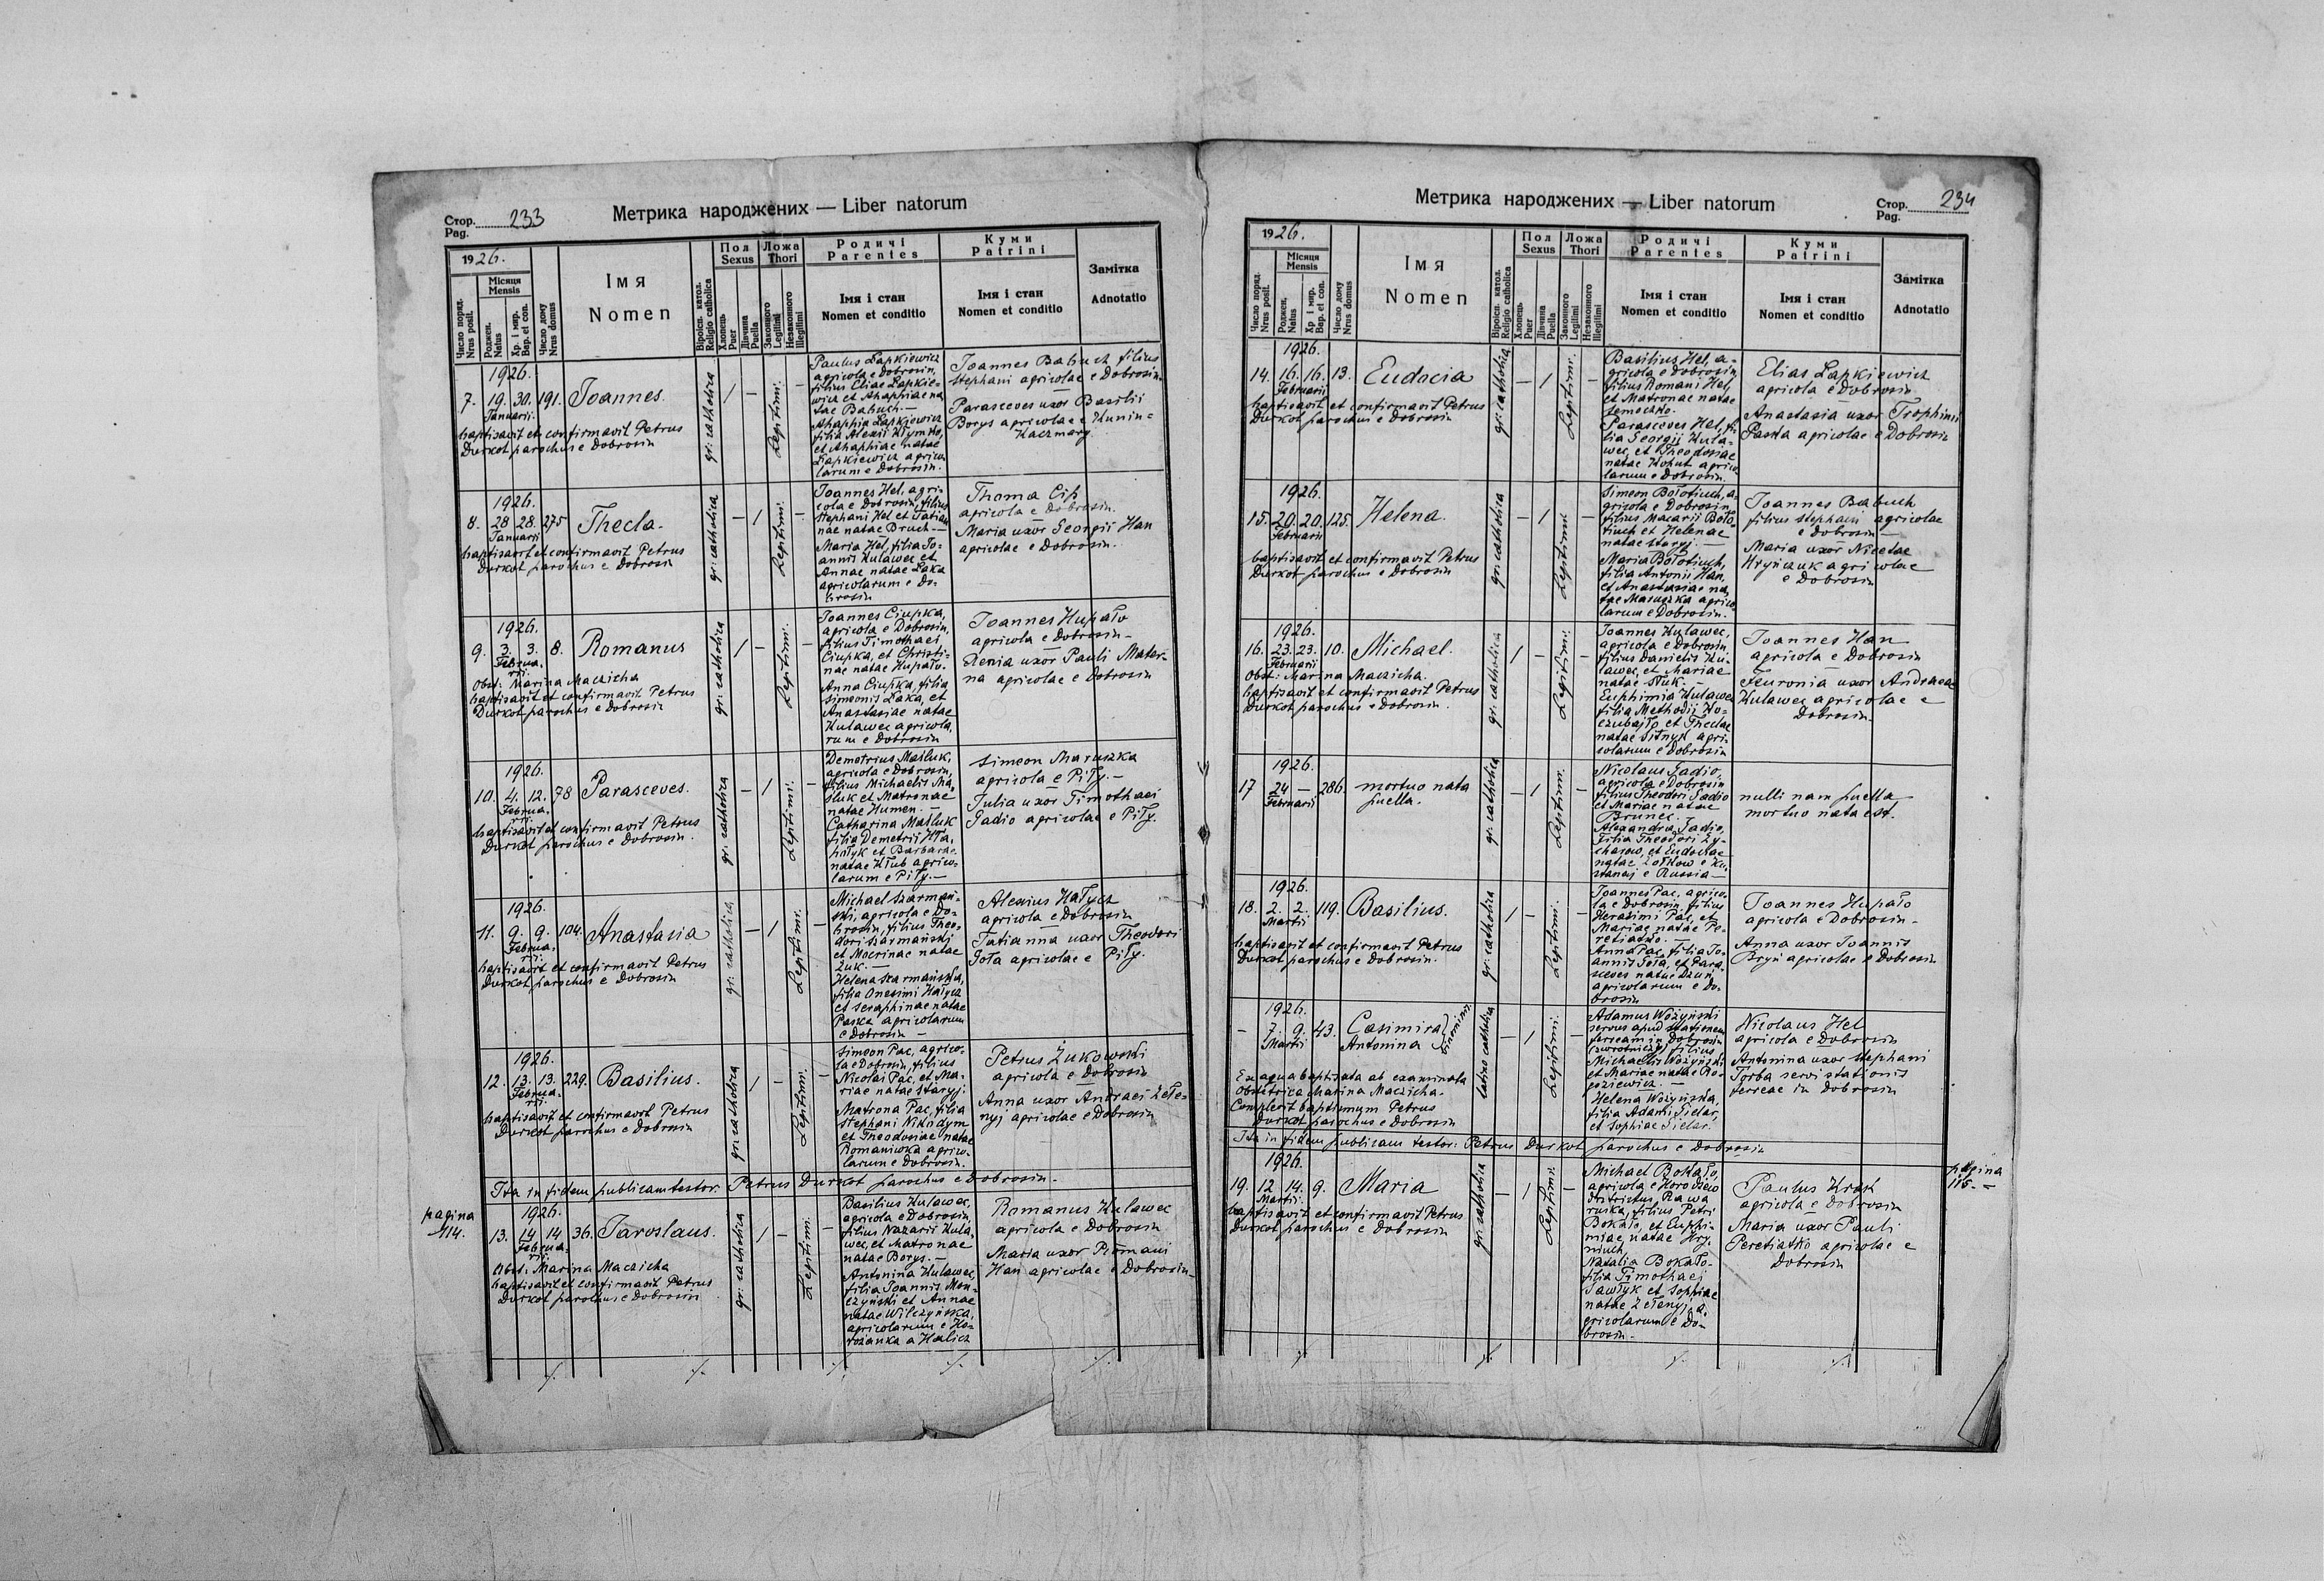 Стор. 233
Pag.
Метрика народжених — Liber natorum
1926.
Число поряд.
Nrus posit.
Місяця
Mensis
Роджен.
Natus
Хр. і мир.
Bap. et con.
Число дому
Nrus domus
Імя
Nomen
Віроісп. катол.
Religio catholica
Пол
Sexus
Хлопець
Puer
Дівчина
Puella
Ложа
Thori
Законного
Legitimi
Незаконного
Illegitimi
Родичі
Parentes
Імя і стан
Nomen et conditio
Куми
Patrini
Імя і стан
Nomen et conditio
Замітка
Adnotatio
1926.
7. 19. 30. 191. Joannes.
Januarii.
baptisavit et confirmavit Petrus
Durkot parochus e Dobrosin
gr. catholica
1 —
Legitimi. —
Paulus Łapkiewicz
agricola e Dobrosin,
filius Eliae Łapkie-
wicz et Ahaphiae na
tae Babuch.—
Ahaphia Łapkiewicz
filia Alexii Kłymko,
et Ahaphiae natae
Łapkiewicz agrico
larum e Dobrosin.
Joannes Babuch filius
Stephani agricolae e Dobrosin.
Parasceves uxor Basilii
Borys agricolae e Kunin=
Kaczmary.
1926.
8. 28 28. 275 Thecla.
Januarii
baptisavit et confirmavit Petrus
Durkot parochus e Dobrosin
gr. catholica
— 1
Legitimi. —
Joannes Hel, agri-
cola e Dobrosin, filius
Stephani Hel et Tatian
nae natae Druch—
Maria Hel, filia Jo-
annis Kulawec et
Annae natae Łaka
agricolarum e Do-
brosin
Thoma Cip
agricola e Dobrosin.
Maria uxor Georgii Han
agricolae e Dobrosin.
1926.
9. 3. 3. 8. Romanus
Februa-
rii.
Obst: Marina Maczicha
baptisavit et confirmavit Petrus
Durkot parochus e Dobrosin
gr. catholica
1 —
Legitimi. —
Joannes Ciupka,
agricola e Dobrosin,
filius Timothaei
Ciupka, et Christi-
nae natae Hupało.
Anna Ciupka, filia
Simeonis Łaka, et
Anastasiae natae
Kulawec agricola,
rum e Dobrosin
Joannes Hupało
agricola e Dobrosin—
Xenia uxor Pauli Mater-
na agricolae e Dobrosin
1926.
10. 4. 12. 78 Parasceves.
Februa-
rii.
baptisavit et confirmavit Petrus
Durkot parochus e Dobrosin.
gr. catholica
— 1
Legitimi. —
Demetrius Masluk,
agricola e Dobrosin,
filius Michaelis Ma-
sluk et Matronae
natae Humen.—
Catharina Masluk
filia Demetrii
et Barbarae
natae Kłub agrico-
larum e Piły.—
Simeon Maruszka
agricola e Piły.—
Julia uxor Timothaei
Sadio agricolae e Piły.
1926.
11. 9. 9. 104. Anastasia
Februa-
rii.
baptisavit et confirmavit Petrus
Durkot parochus e Dobrosin
gr. catholica
— 1
Legitimi. —
Michael Szarmań-
ski, agricola e Do-
brosin, filius Theo-
dori Szarmański
et Mocrinae natae
Żuk.—
Helena Szarmańska,
filia Onesimi Hałycz
et Seraphinae natae
Paska agricolarum
e Dobrosin—
Alexius Hałycz
agricola e Dobrosin
Tatianna uxor Theodori
Sota agricolae e Piły.
1926.
12. 13. 13. 229. Basilius.
Februa-
rii.
baptisavit et confirmavit Petrus
Durkot parochus e Dobrosin
gr. catholica
1 —
Legitimi. —
Simeon Pac, agrico-
la e Dobrosin, filius
Nicolai Pac, et Ma-
riae natae Staryj.
Matrona Pac, filia
Stephani Nikodym
et Theodosiae natae
Romaniwka agrico-
larum e Dobrosin.
Petrus Żukowski
agricola e Dobrosin
Anna uxor Andraei Zełe-
nyj agricolae e Dobrosin
Ita in fidem publicam testor: Petrus Durkot parochus e Dobrosin.
pagina
114.
1926.
13. 14 14 36. Jaroslaus.
Februa-
rii.
Obst: Marina Maczicha
baptisavit et confirmavit Petrus
Durkot parochus e Dobrosin
gr. catholica
1 —
Legitimi. —
Basilius Kulawec,
agricola e Dobrosin,
filius Nazarii Kula-
wec, et Matronae
natae Borys.—
Antonina Kulawec,
filia Joannis Mon-
czyński et Annae
natae Wilczyńska,
agricolarum e Ho-
rożanka a Halicz
Romanus Kulawec
agricola e Dobrosin
Maria uxor Romani
Han agricolae e Dobrosin—
Метрика народжених — Liber natorum
Стор. 234
Pag.
1926.
Число поряд.
Nrus posit.
Місяця
Mensis
Роджен.
Natus
Хр. і мир.
Bap. et con.
Число дому
Nrus domus
Імя
Nomen
Віроісп. катол.
Religio catholica
Пол
Sexus
Хлопець
Puer
Дівчина
Puella
Ложа
Thori
Законного
Legitimi
Незаконного
Illegitimi
Родичі
Parentes
Імя і стан
Nomen et conditio
Куми
Patrini
Імя і стан
Nomen et conditio
Замітка
Adnotatio
1926.
14. 16. 16. 13. Eudocia
Februarii
baptisavit et confirmavit Petrus
Durkot parochus e Dobrosin
gr. catholica
— 1
Legitimi. —
Basilius Hel, a-
gricola e Dobrosin,
filius Romani Hel,
et Matronae natae
Semeczko.
Parasceves Hel, fi-
lia Georgii Kula-
wec, et Theodosiae
natae Kohut agrico
larum e Dobrosin.
Elias Łapkiewicz
agricola e Dobrosin
Anastasia uxor Trophimi
Paska agricolae e Dobrosin
1926.
15. 20. 20. 125. Helena.
Februarii
baptisavit et confirmavit Petrus
Durkot parochus e Dobrosin
gr. catholica
— 1
Legitimi —
Simeon Bołotiuch, a,
gricola e Dobrosin
filius Macarii Boło
tiuch et Helenae
natae Staryj.—
Maria Bołotiuch,
filia Antonii Han,
et Anastasiae na,
tae Maruszka agrico
larum e Dobrosin.
Joannes Babuch
filius Stephani agricolae
e Dobrosin—
Maria uxor Nicetae
Hryńczuk agricolae
e Dobrosin
1926.
16. 23. 23. 10. Michael.
Februarii
Obst: Marina Maczicha.
baptisavit et confirmavit Petrus
Durkot parochus e Dobrosin.
gr. catholica
1 —
Legitimi. —
Joannes Kulawec,
agricola e Dobrosin,
filius Danielis Ku-
lawec, et Mariae
natae Stuk.—
Euphimia Kulawec
filia Methodii Ko-
czubajło et Theclae
natae Sitnyk agri-
colarum e Dobrosin
Joannes Han
agricola e Dobrosin
Feuronia uxor Andreae
Kulawec agricolae e
Dobrosin.
1926.
17 24 — 286. mortuo nata
Februarii puella.
gr. catholica
— 1
Legitimi. —
Nicolaus Sadio,
agricola e Dobrosin
filius Theodori Sadio
et Mariae natae
Brunec.
Alexandra Sadio,
filia Theodori Zy-
charow, et Eudociae
natae Zołkow e Ku,
stanaj e Russia—
nulli nam puella
mortuo nata est.
1926.
18. 2. 2. 119. Basilius.
Martii
baptisavit et confirmavit Petrus
Durkot parochus e Dobrosin.
gr. catholica
1 —
Legitimi. —
Joannes Pac, agrico-
la e Dobrosin, filius
Herasimi Pac, et
Mariae natae Pe-
retiatko.—
Anna Pac, filia Jo-
annis Sota, et Para-
sceves natae Dzun,
agricolarum e Do-
brosin
Joannes Hupało
agricola e Dobrosin—
Anna uxor Joannis
Bryń agricolae e Dobrosin
1926.
— 7. 9. 43. Casimira
Martii Antonina } binominis
Ex aqua baptisata ab examinata
obstetrica Marina Maczicha.
Complevit baptismum Petrus
Durkot parochus e Dobrosin
latino catholica
— 1
Legitimi. —
Adamus Wożyński
servus apud stationem
ferream in Dobrosin
(zwrotniczy) filius
Michaelis Wożyński
et Mariae natae Ro-
goziewicz.—
Helena Wożyńska,
filia Adami Sielar,
et Sophiae Sielar.
Nicolaus Hel
agricola e Dobrosin
Antonina uxor Stephani
Torba servi stationis
ferreae in Dobrosin
Ita in fidem publicam testor: Petrus Durkot parochus e Dobrosin
1926.
19. 12. 14. 9. Maria
Martii.
baptisavit et confirmavit Petrus
Durkot parochus e Dobrosin
gr. catholica
— 1
Legitimi. —
Michael Bokało,
agricola e Horodżiw
districtus Rawa
ruska, filius Petri
Bokało, et Euphi-
miae natae Hry-
niuch
Natalia Bokało—
filia Timothaei
Sawłyk et Sophiae
natae Zełenyj a,
gricolarum e Do-
brosin—
Paulus Krask
agricola e Dobrosin
Maria uxor Pauli
Peretiatko agricolae e
Dobrosin
pagina
115.—